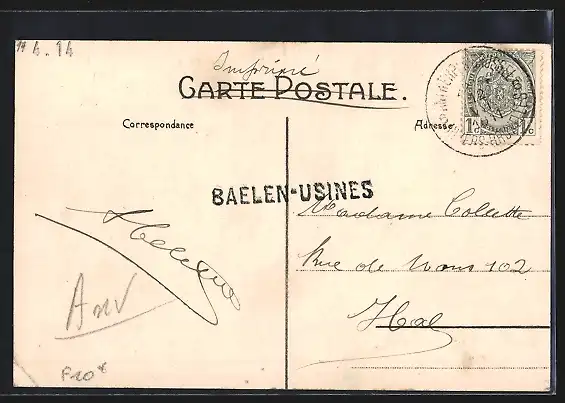 19 4. 14
Imprimé
CARTE POSTALE.
Correspondance
Adresse
1c 1c
BAELEN-USINES
Madame Colette
Rue de Mons 102
Hal
Anv
F20x